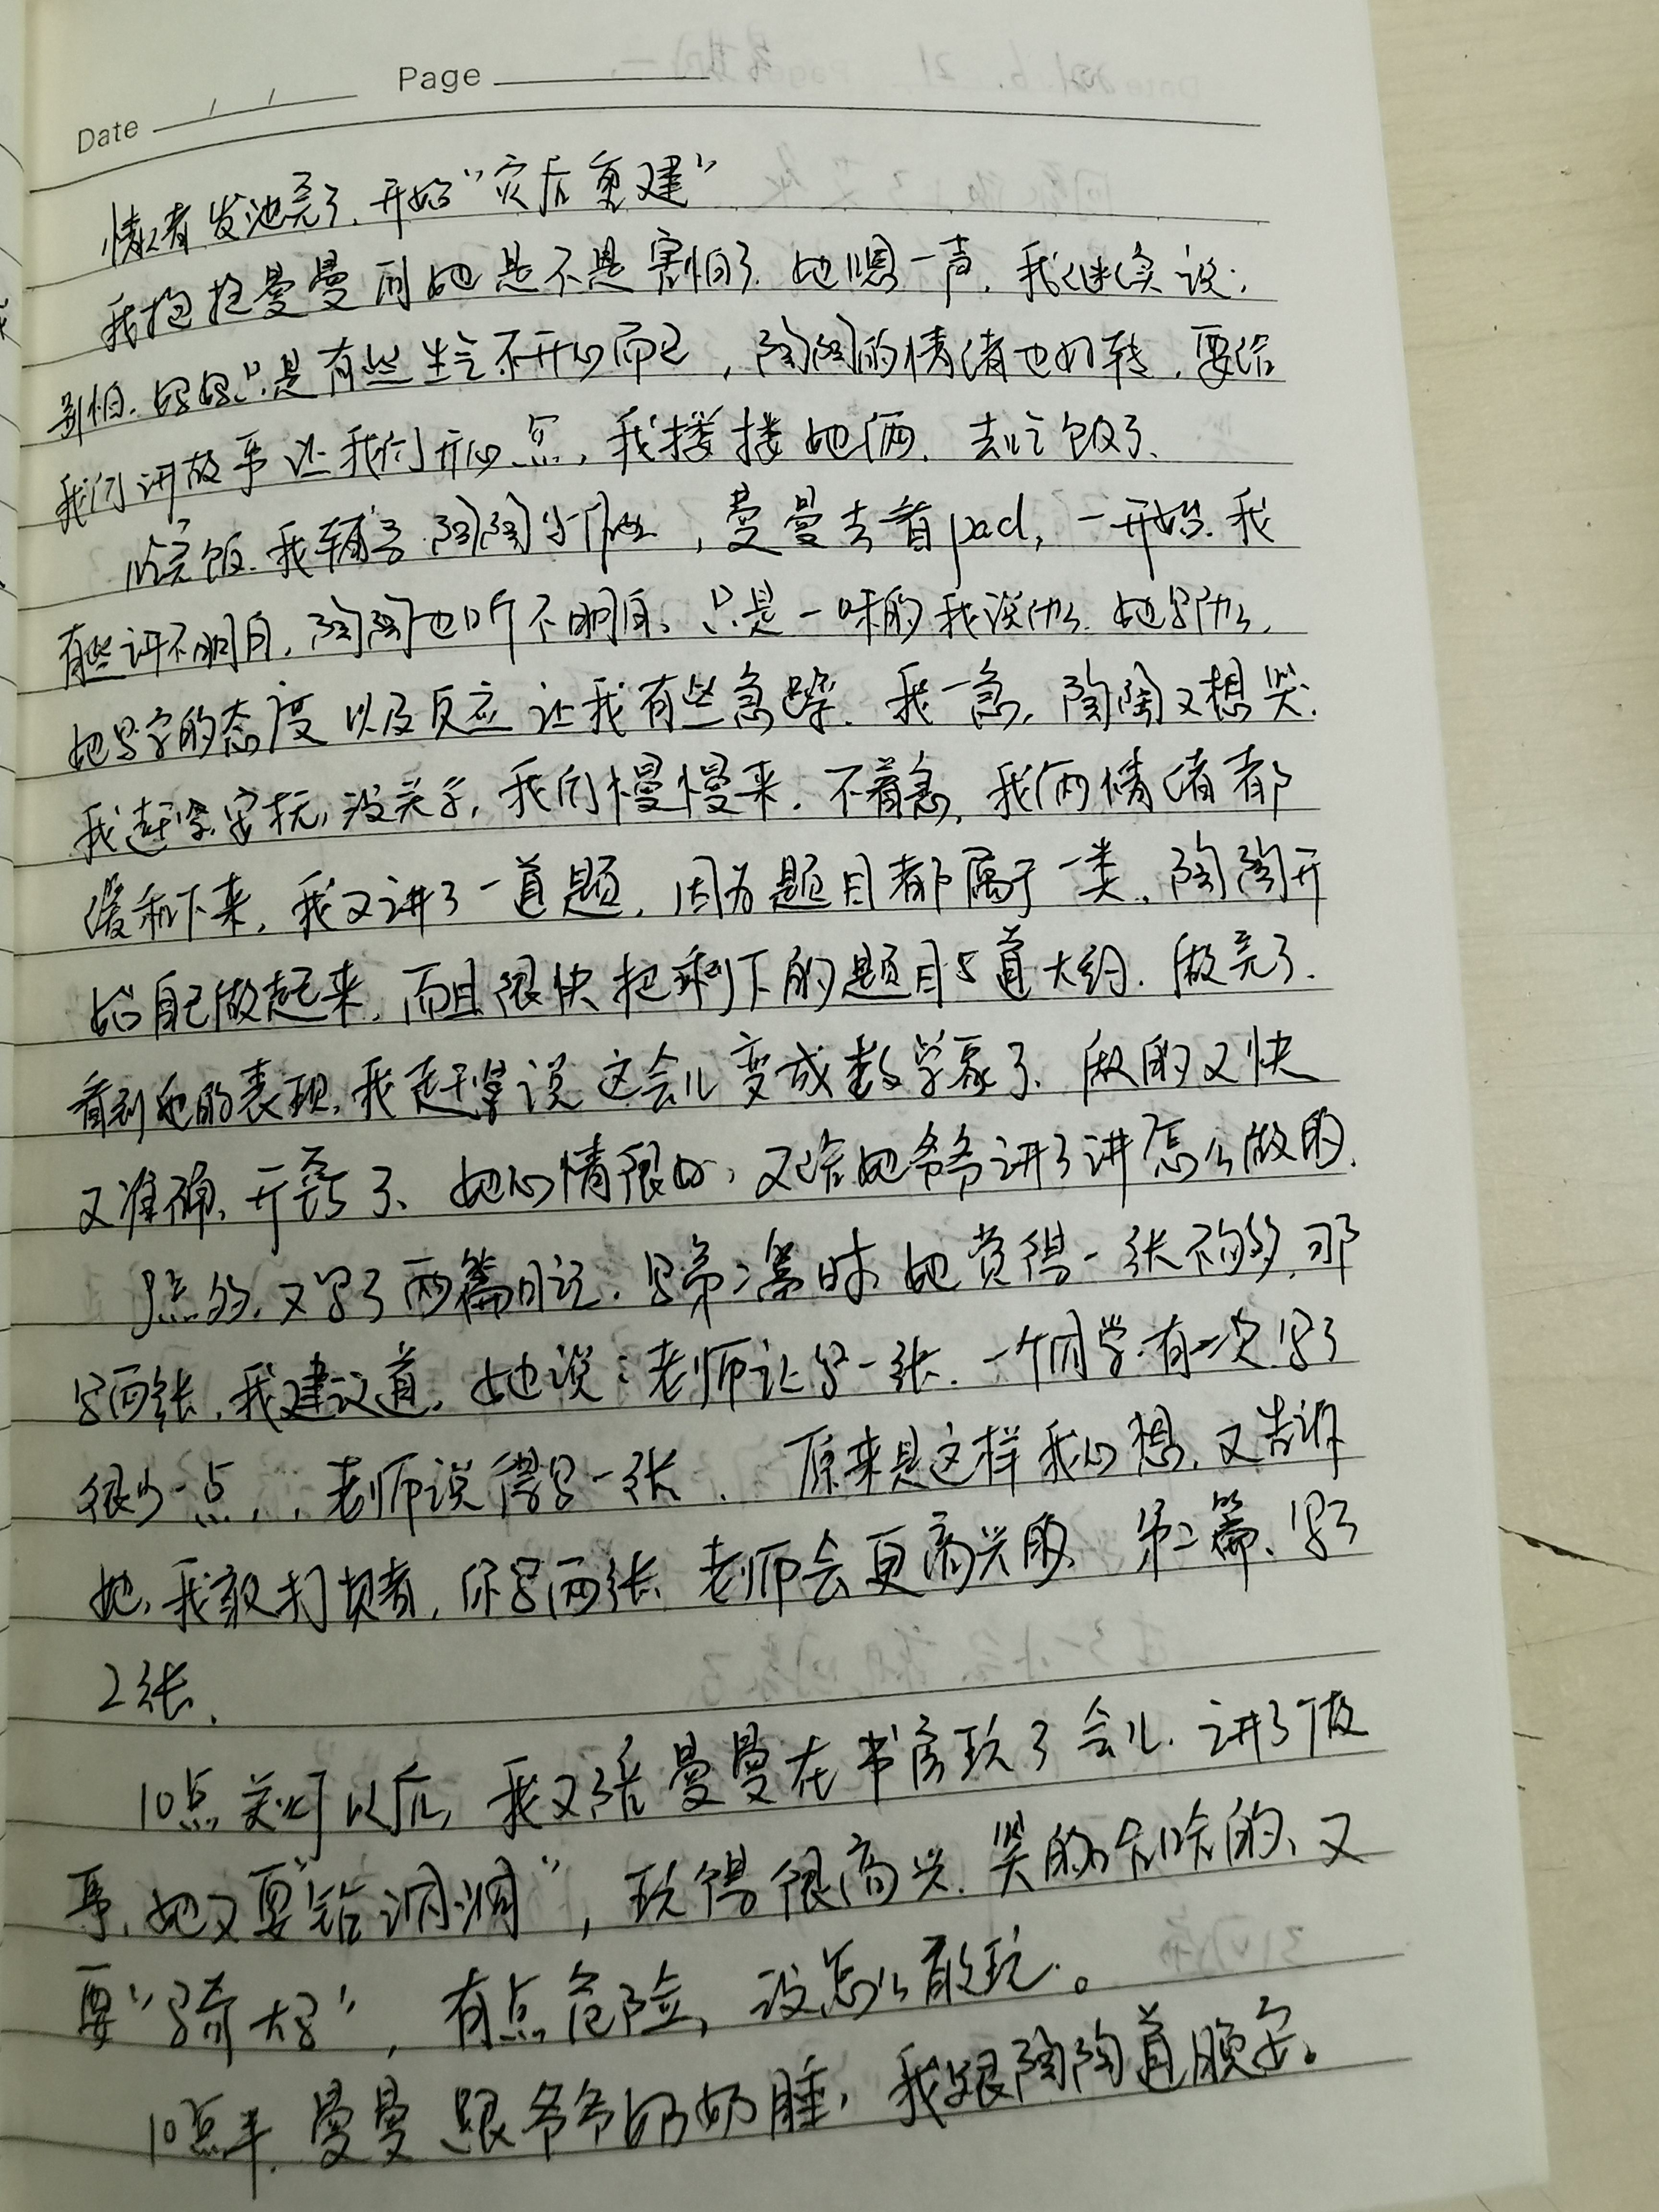 Page
Date
情绪发泄完了.开始“灾后重建”
我抱抱曼曼问她是不是害怕了.她嗯一声.我继续说:
别怕.妈妈只是有些生气不开心而已,陶陶的情绪也好转.要给
我们讲故事让我们开心点,我搂搂她俩.去吃饭了.
吃完饭.我辅导陶陶作业,曼曼去看pad,一开始.我
有些讲不明白.陶陶也听不明白.只是一味的我说什么.她写什么.
她写字的态度以及反应让我有些急躁.我一急.陶陶又想哭.
我赶紧安抚,没关系,我们慢慢来.不着急,我俩情绪都
缓和下来,我又讲了一道题.因为题目都属于一类.陶陶开
始自己做起来,而且很快把剩下的题目5道大约.做完了.
看到她的表现,我赶紧说这会儿变成数学家了、做的又快
又准确、开窍了、她心情很好,又给她爷爷讲了讲怎么做的.
9点多,又写了两篇日记.写第二篇时她觉得一张不够多,那
写两张,我建议道,她说:老师让写一张.一个同学有一次写了
很少一点,,老师说得写一张.原来是这样我心想,又告诉
她,我敢打赌,你写两张.老师会更高兴的.第二篇、写了
2张.
10点关灯以后,我又陪曼曼在书房玩了会儿.讲了故
事.她又要“钻洞洞”,玩得很高兴.笑的咯咯的、又
要“骑大马”,有点危险,没怎么敢玩.。
10点半.曼曼跟爷爷奶奶睡,我跟陶陶道晚安。